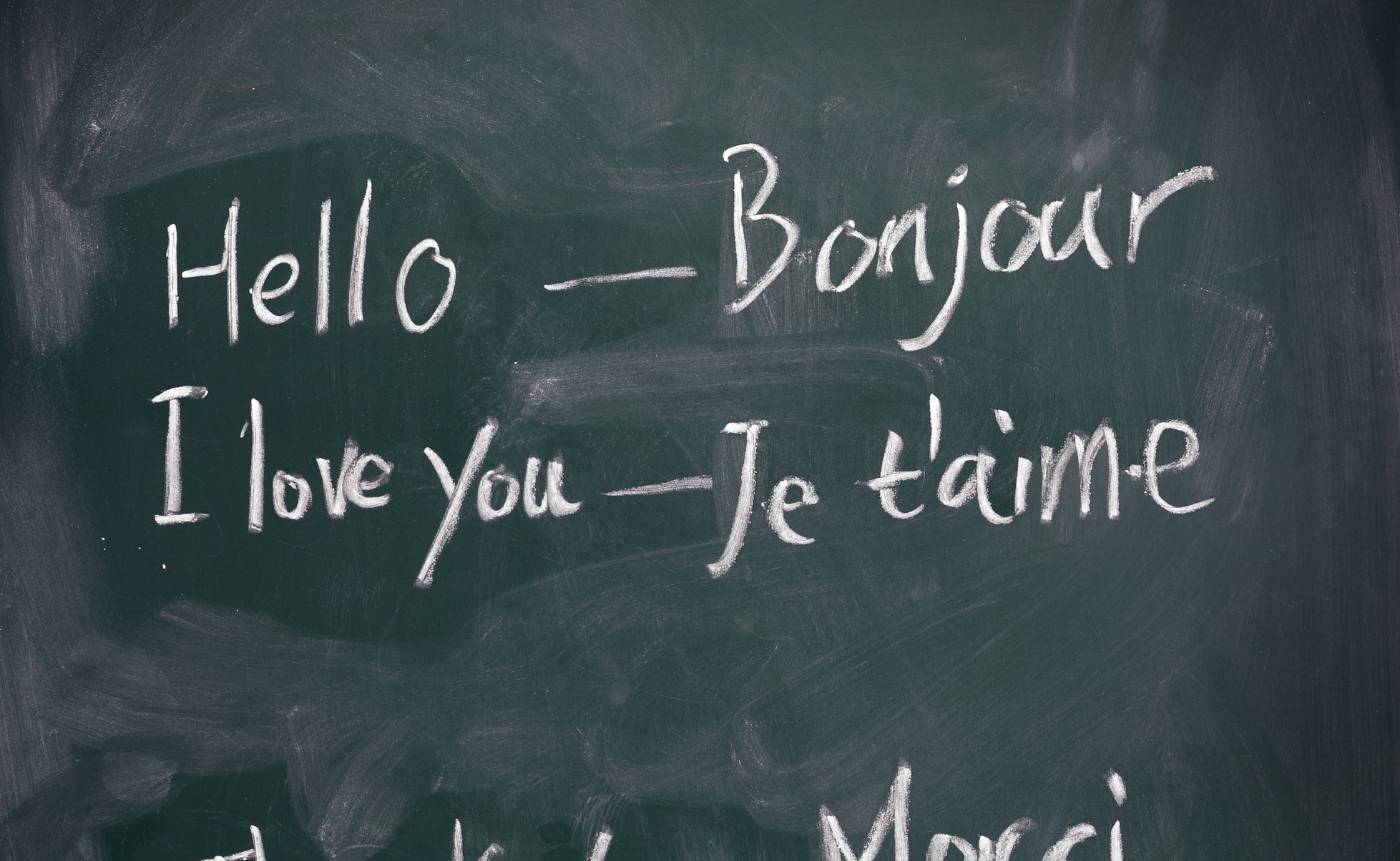 Hello — Bonjour
I love you — Je t'aime
Merci